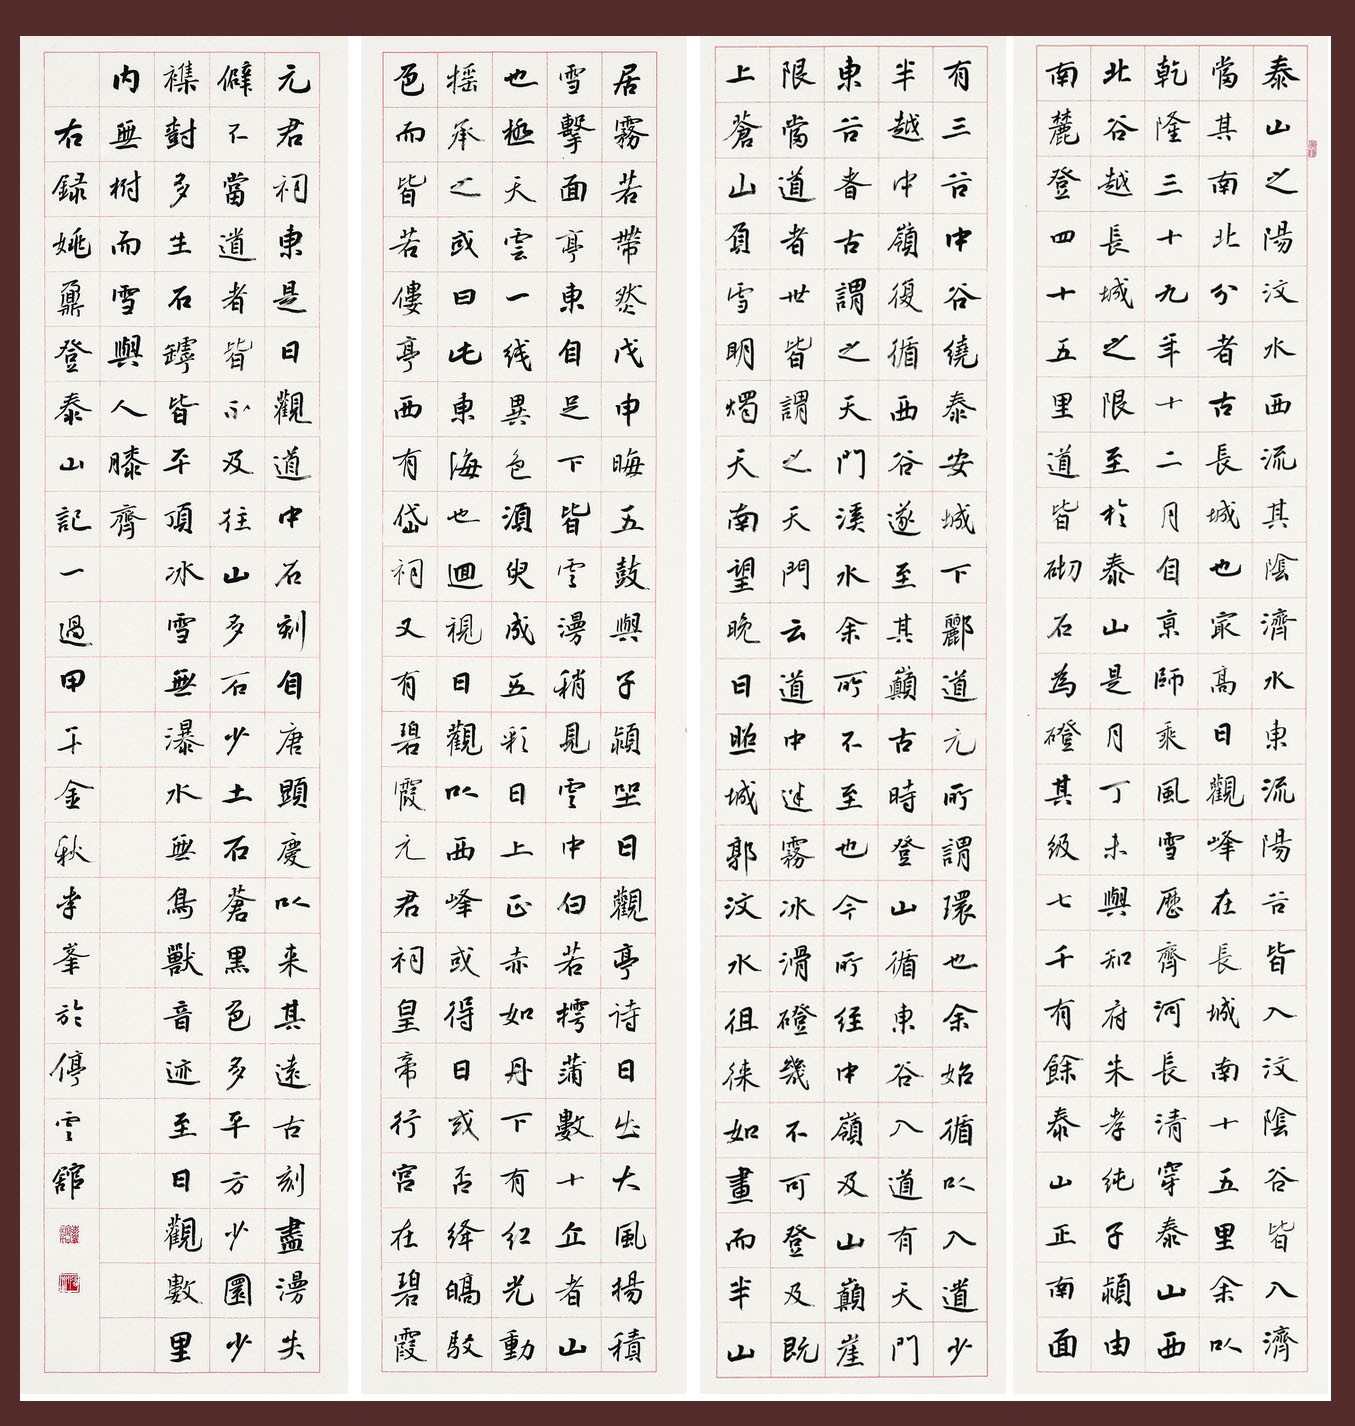 泰山之陽汶水西流其陰濟水東流陽谷皆入汶陰谷皆入濟
當其南北分者古長城也最高日觀峰在長城南十五里余以
乾隆三十九年十二月自京師乘風雪歷齊河長清穿泰山西
北谷越長城之限至於泰山是月丁未與知府朱孝純子潁由
南麓登四十五里道皆砌石為磴其級七千有餘泰山正南面
有三谷中谷繞泰安城下酈道元所謂環也余始循以入道少
半越中嶺復循西谷遂至其巔古時登山循東谷入道有天門
東谷者古謂之天門溪水余所不至也今所經中嶺及山巔崖
限當道者世皆謂之天門云道中迷霧冰滑磴幾不可登及既
上蒼山負雪明燭天南望晚日照城郭汶水徂徠如畫而半山
居霧若帶然戊申晦五鼓與子潁坐日觀亭诗日出大風揚積
雪擊面亭東自足下皆雲漫稍見雲中白若樗蒲數十立者山
也極天雲一线異色須臾成五彩日上正赤如丹下有红光動
搖承之或曰此東海也迴視日觀以西峰或得日或否绛皜駁
色而皆若僂亭西有岱祠又有碧霞元君祠皇帝行宮在碧霞
元君祠東是日觀道中石刻自唐顯慶以来其遠古刻盡漫失
僻不當道者皆不及往山多石少土石蒼黑色多平方少圜少
襍樹多生石罅皆平頂冰雪無瀑水無鳥獸音迹至日觀數里
内無樹而雪與人膝齊
右録姚鼐登泰山記一過甲午金秋李峯於停雲館